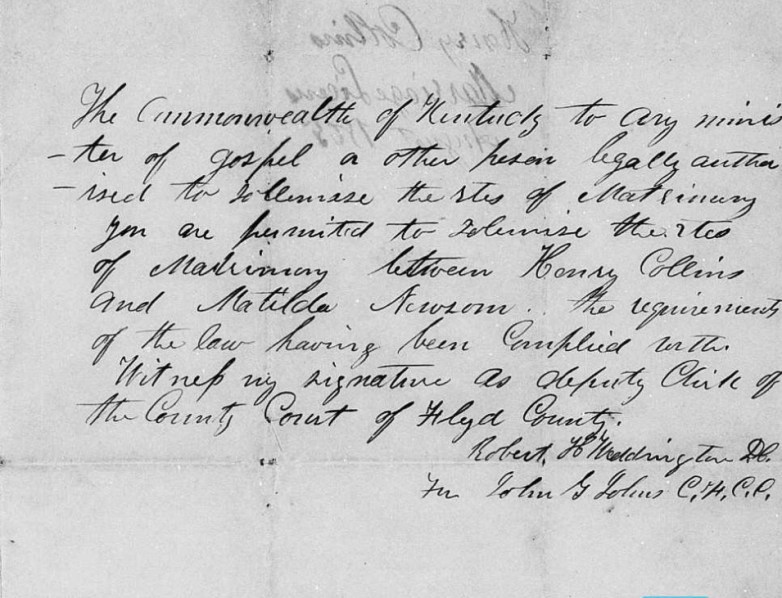 Henry Collins
Marriage License
The Commonwealth of Kentucky to any minis
-ter of gospel or other person legally autho
-ised to sollemise the rtes of Matrimony
you are permited to solemise the rtes
of Matrimony between Henry Collins
and Matilda Newsom. the requirements
of the law having been Complied with.
Witness my signature as deputy Clirk of
the County Court of Flyd County.
Robert, H Weddington D.C.
For John G Johns C, F, C, C,